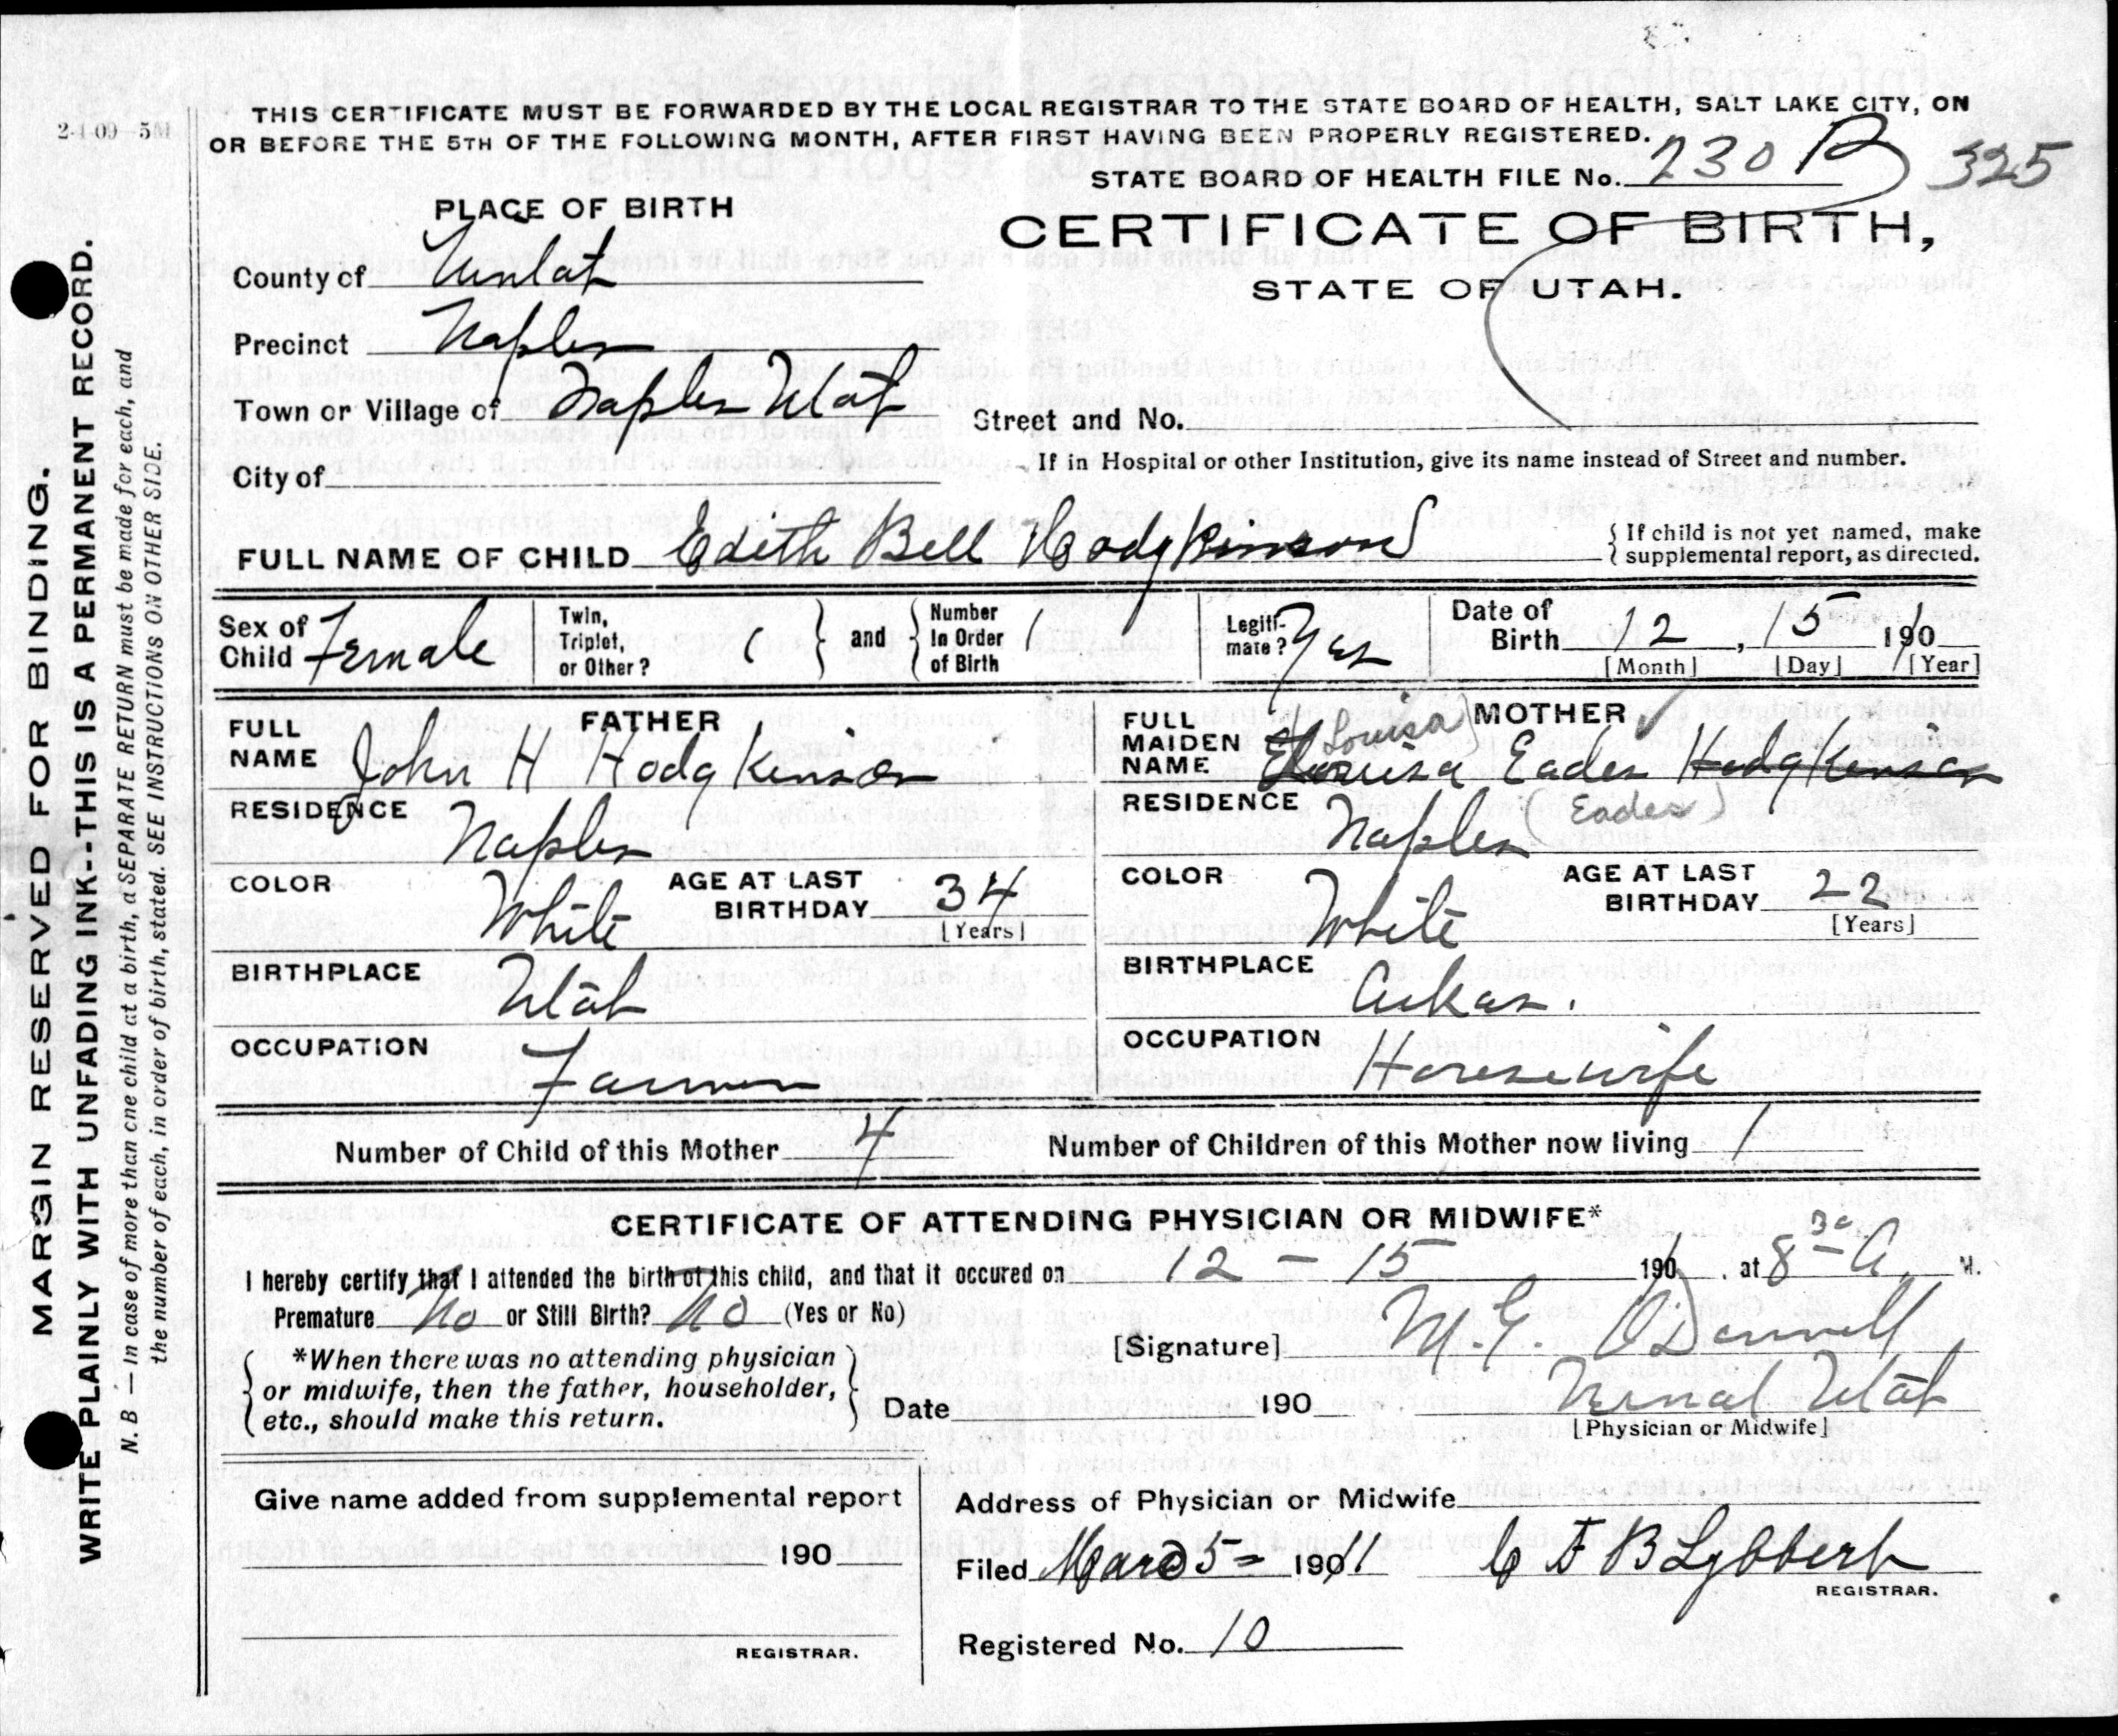 2-4-09-5M
THIS CERTIFICATE MUST BE FORWARDED BY THE LOCAL REGISTRAR TO THE STATE BOARD OF HEALTH, SALT LAKE CITY, ON
OR BEFORE THE 5TH OF THE FOLLOWING MONTH, AFTER FIRST HAVING BEEN PROPERLY REGISTERED.
STATE BOARD OF HEALTH FILE No. 230 B 325
PLACE OF BIRTH
CERTIFICATE OF BIRTH,
STATE OF UTAH.
County of
Precinct Naples
Town or Village of Naples Utah
Street and No.
If in Hospital or other Institution, give its name instead of Street and number.
City of
FULL NAME OF CHILD Edith Bell Hodgkinson
{ If child is not yet named, make
{ supplemental report, as directed.
Sex of Child Female
Twin, Triplet, or Other? 1 } and { Number In Order of Birth 1
Legiti- mate? Yes
Date of Birth 12, 15 1910
[Month] [Day] [Year]
FATHER
FULL NAME John H Hodgkinson
RESIDENCE Naples
COLOR White
AGE AT LAST BIRTHDAY 34
[Years]
BIRTHPLACE Utah
OCCUPATION Farmer
MOTHER
FULL MAIDEN NAME Louisa Eades Hodgkinson
Louisa
RESIDENCE Naples (Eades)
COLOR White
AGE AT LAST BIRTHDAY 22
[Years]
BIRTHPLACE Arkas.
OCCUPATION Housewife
Number of Child of this Mother 4
Number of Children of this Mother now living 1
CERTIFICATE OF ATTENDING PHYSICIAN OR MIDWIFE*
I hereby certify that I attended the birth of this child, and that it occured on 12 - 15 1910, at 8 30 A. M.
Premature No or Still Birth? No (Yes or No)
[Signature] M. G. O'Donnell
*When there was no attending physician
or midwife, then the father, householder,
etc., should make this return.
Date 190
Vernal Utah
[Physician or Midwife]
Give name added from supplemental report
190
REGISTRAR.
Address of Physician or Midwife
Filed Mar 5 1911 C F B Lybbert
REGISTRAR.
Registered No. 10
MARGIN RESERVED FOR BINDING.
WRITE PLAINLY WITH UNFADING INK--THIS IS A PERMANENT RECORD.
N. B — In case of more than one child at a birth, a SEPARATE RETURN must be made for each, and
the number of each, in order of birth, stated. SEE INSTRUCTIONS ON OTHER SIDE.